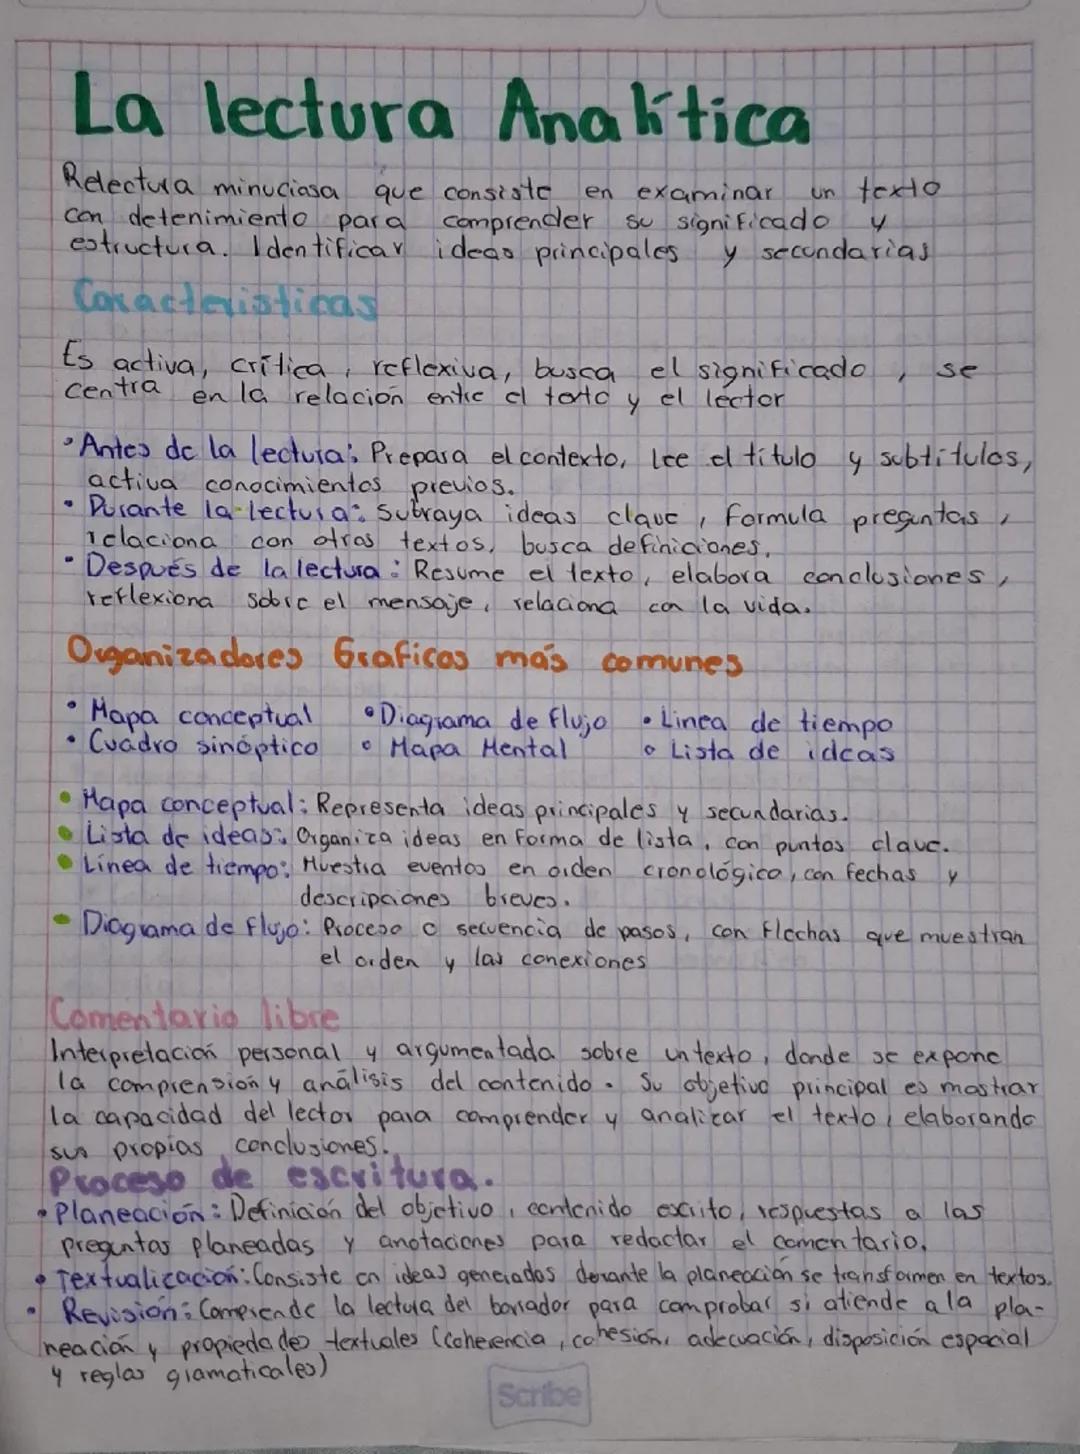 La lectura Analítica
Relectura minuciosa que consiste en examinar un texto
con detenimiento para comprender su significado y
estructura. Identificar ideas principales y secundarias
Caracteristicas
Es activa, crítica, reflexiva, busca el significado, se
centra en la relación entre el texto y el lector
• Antes de la lectura: Prepara el contexto, lee el título y subtítulos,
activa conocimientos previos.
• Durante la lectura: Subraya ideas clave, formula preguntas,
relaciona con otros textos, busca definiciones.
• Después de la lectura: Resume el texto, elabora conclusiones,
reflexiona sobre el mensaje, relaciona con la vida.
Organizadores Graficos más comunes
• Mapa conceptual • Diagrama de flujo • Linea de tiempo
• Cuadro sinóptico • Mapa Mental • Lista de ideas
• Mapa conceptual: Representa ideas principales y secundarias.
• Lista de ideas: Organiza ideas en forma de lista, con puntos clave.
• Línea de tiempo: Muestra eventos en orden cronológico, con fechas y
descripciones breves.
• Diagrama de flujo: Proceso o secuencia de pasos, con flechas que muestran
el orden y las conexiones
Comentario libre
Interpretación personal y argumentada sobre un texto, donde se expone
la comprensión y análisis del contenido. Su objetivo principal es mostrar
la capacidad del lector para comprender y analizar el texto, elaborando
sus propias conclusiones.
Proceso de escritura.
• Planeación: Definición del objetivo, contenido escrito, respuestas a las
preguntas planeadas y anotaciones para redactar el comentario.
• Textualización: Consiste en ideas generados durante la planeación se transformen en textos.
• Revisión: Comprende la lectura del borrador para comprobar si atiende a la pla-
neación y propiedades textuales (coherencia, cohesión, adecuación, disposición espacial
y reglas gramaticales)
Scribe